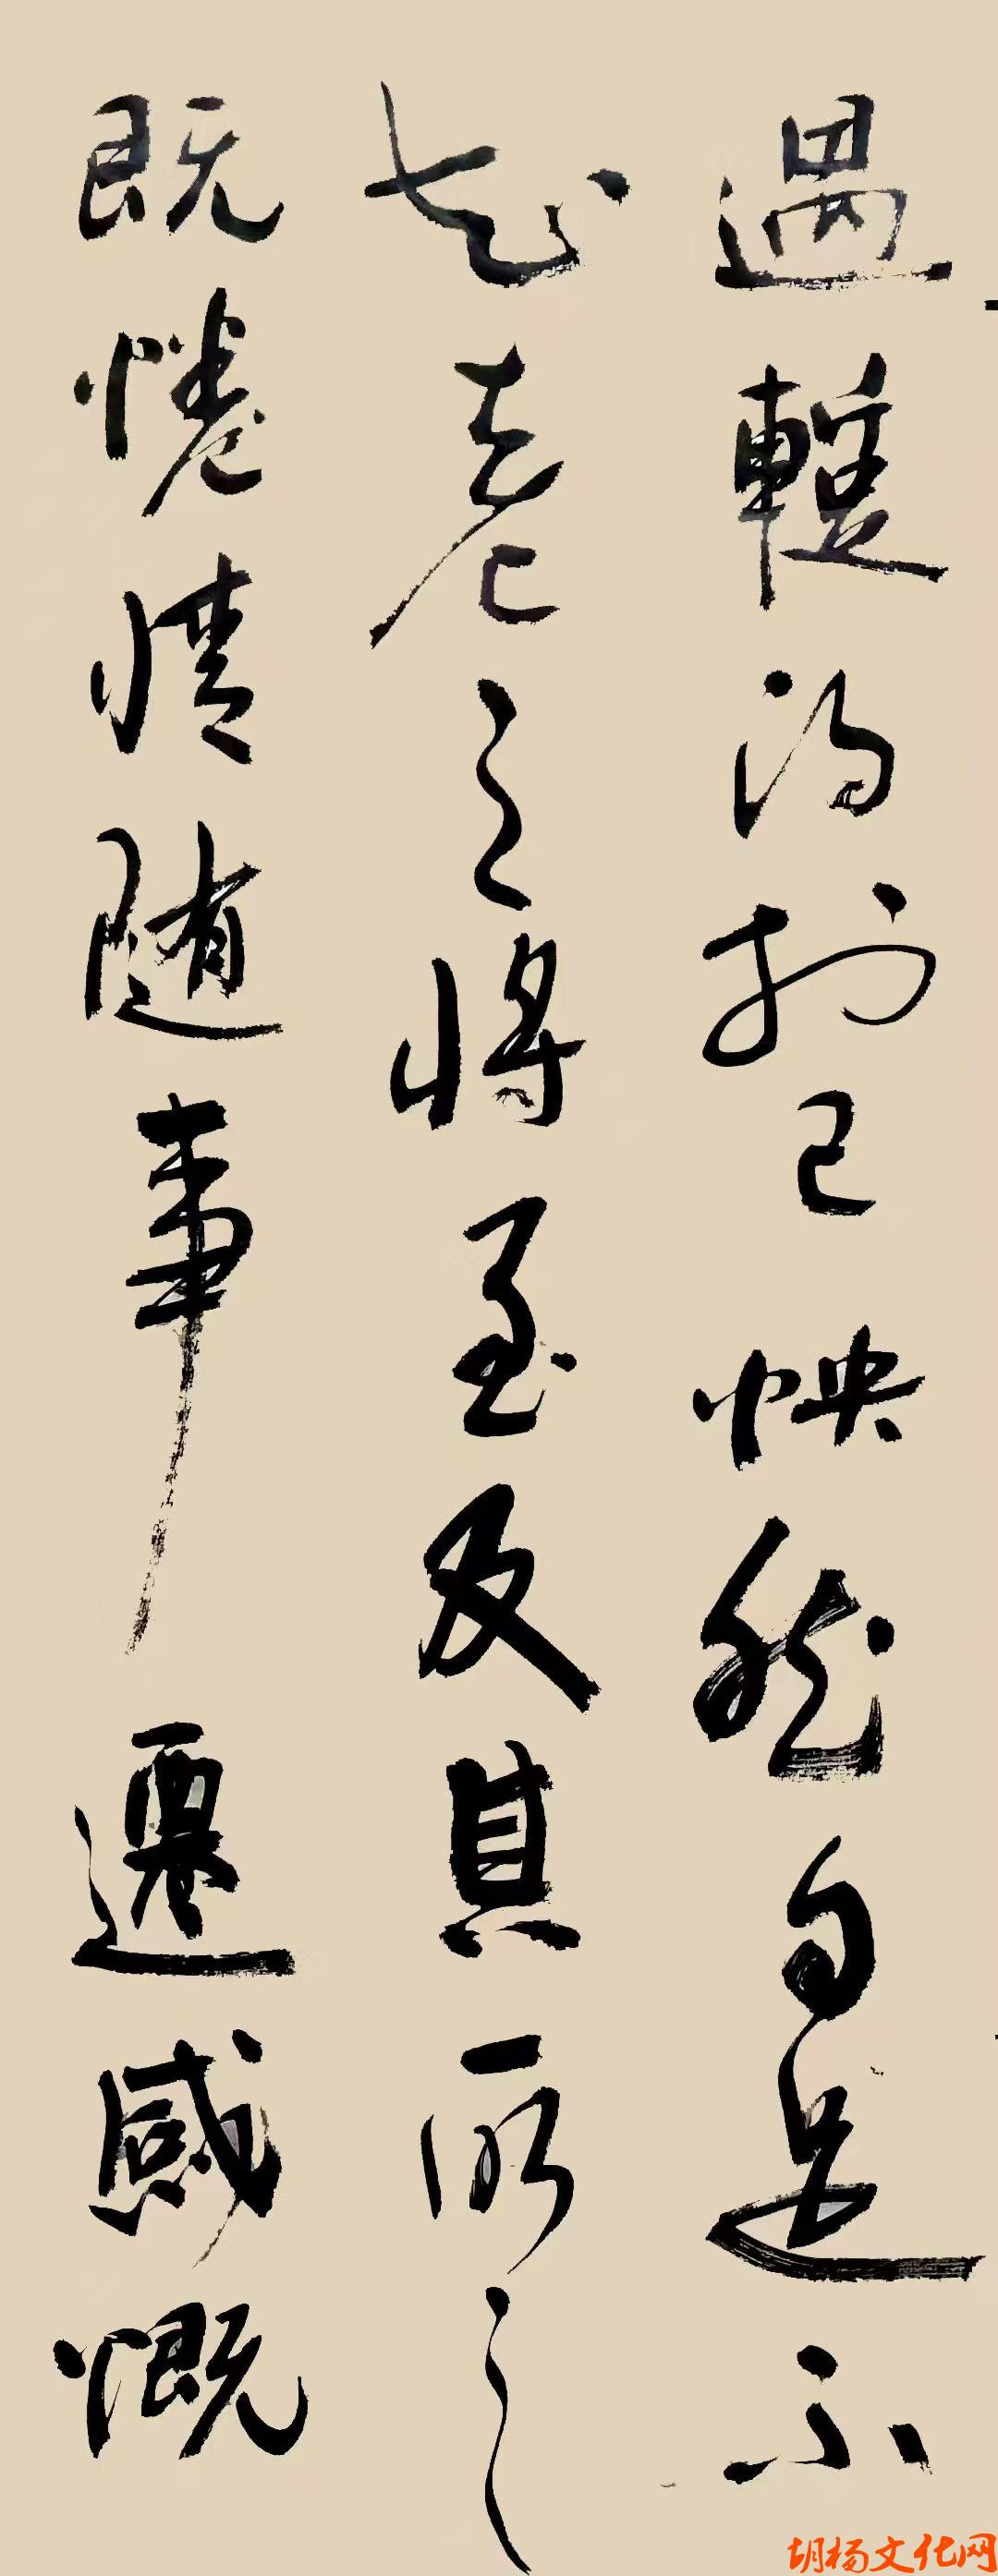 遇蹔得於己怏然自足不
知老之將至及其所之
既惓情随事遷感慨
胡杨文化网